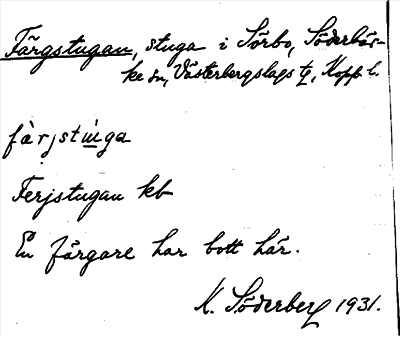 Färgstugan, stuga i Sörbo, Söderbär-
ke sn, Västerbergslags tg, Kopp. l.
færjstùga
Ferjstugan kb
En färgare har bott här.
K. Söderberg 1931.